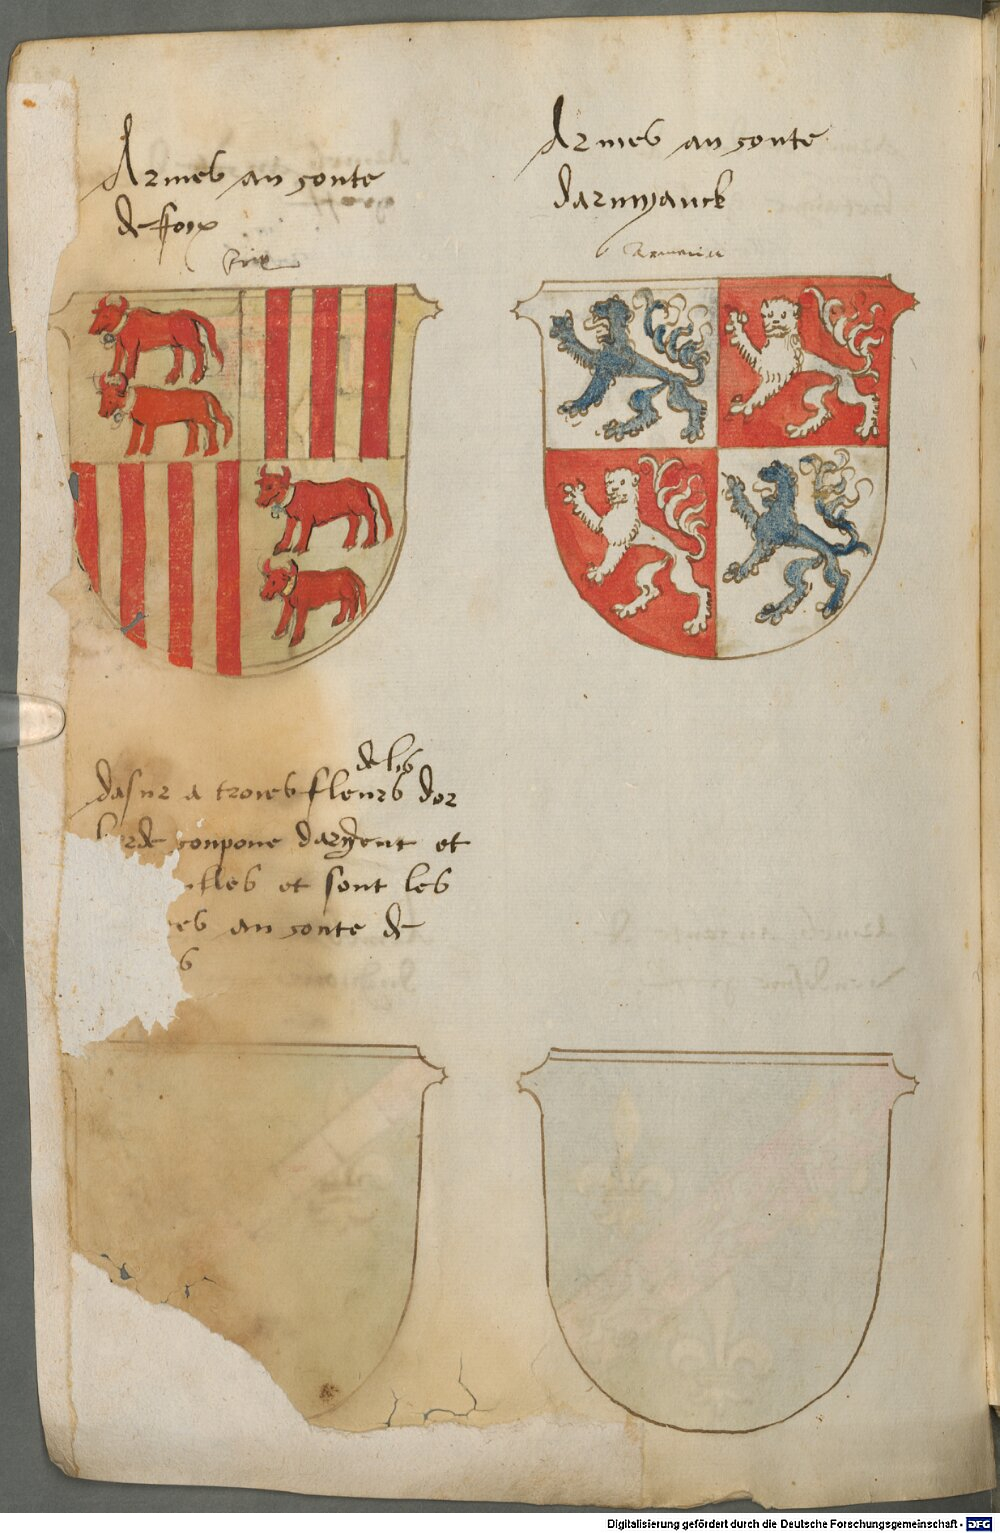 Armes au conte
de ffoix
Armes au conte
darmyanck
de lis
dasur a troies fleurs dor
conpone dargent et
et sont les
au conte de
Digitalisierung gefördert durch die Deutsche Forschungsgemeinschaft - DFG